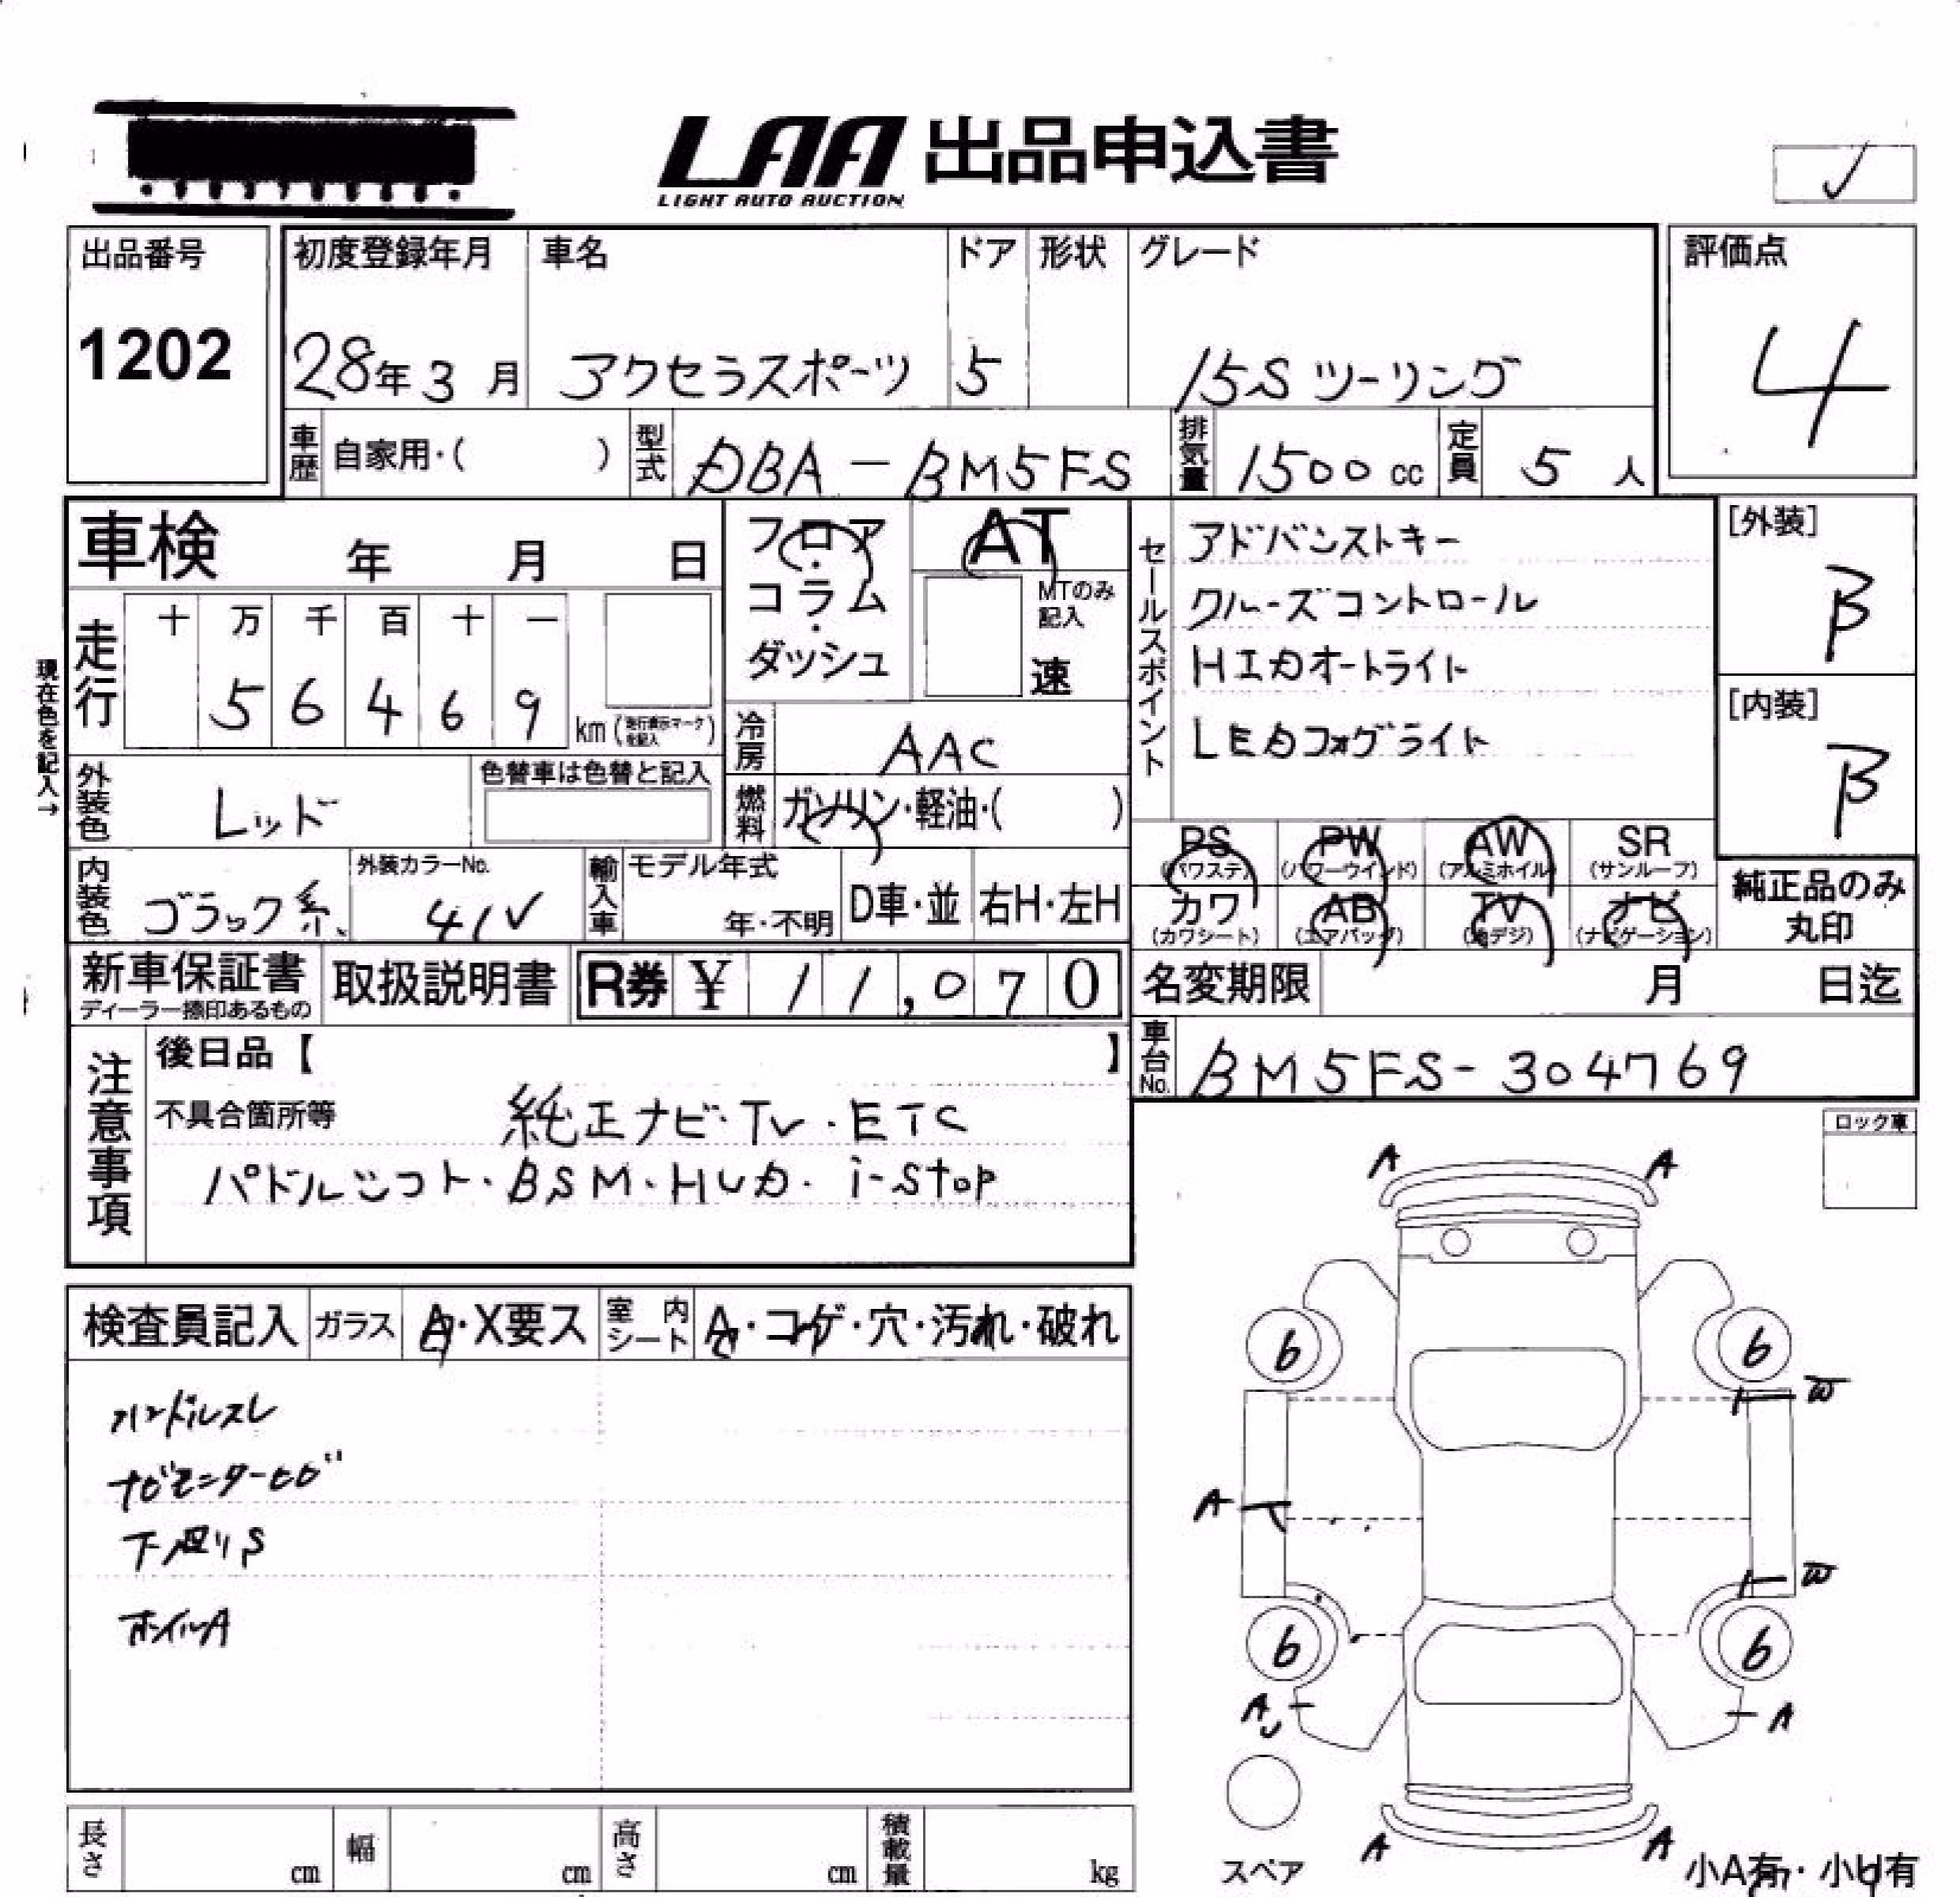 LAA 出品申込書
LIGHT AUTO AUCTION
出品番号 初度登録年月 車名 ドア 形状 グレード 評価点
1202 28年3月 アクセラスポーツ 5 15S ツーリング 4
車歴 自家用・( ) 型式 DBA-BM5FS 排気量 1500cc 定員 5人
車検 年 月 日
フロア・コラム・ダッシュ
AT
MTのみ記入
速
セールスポイント
アドバンストキー
クルーズコントロール
HIDオートライト
LEDフォグライト
[外装]
B
[内装]
B
現在色を記入→
走行 十 万 千 百 十 一
5 6 4 6 9 km (走行表示マークを記入)
冷房 AAC
外装色 レッド 色替車は色替と記入
燃料 ガソリン・軽油・( )
PS (パワステ) PW (パワーウインド) AW (アルミホイル) SR (サンルーフ)
カワ (カワシート) AB (エアバッグ) TV (地デジ) ナビ (ナビゲーション)
純正品のみ
丸印
内装色 ブラック系 外装カラーNo. 41V 輸入車 モデル年式 年・不明 D車・並 右H・左H
新車保証書 取扱説明書 R券 ¥ 11,070 名変期限 月 日迄
ディーラー捺印あるもの
車台No. BM5FS-304769
注意事項
後日品【 】
不具合箇所等 純正ナビ・TV・ETC
パドルシフト・BSM・HUD・i-stop
ロック車
検査員記入 ガラス A・X要ス 室内シート A・コゲ・穴・汚れ・破れ
ハンドルスレ
ナビモニターヒビ
下廻りS
ホイルA
A A
6 6
W
A
W
6 6
A A
A A
スペア
小A有・小U有
長さ cm 幅 cm 高さ cm 積載量 kg